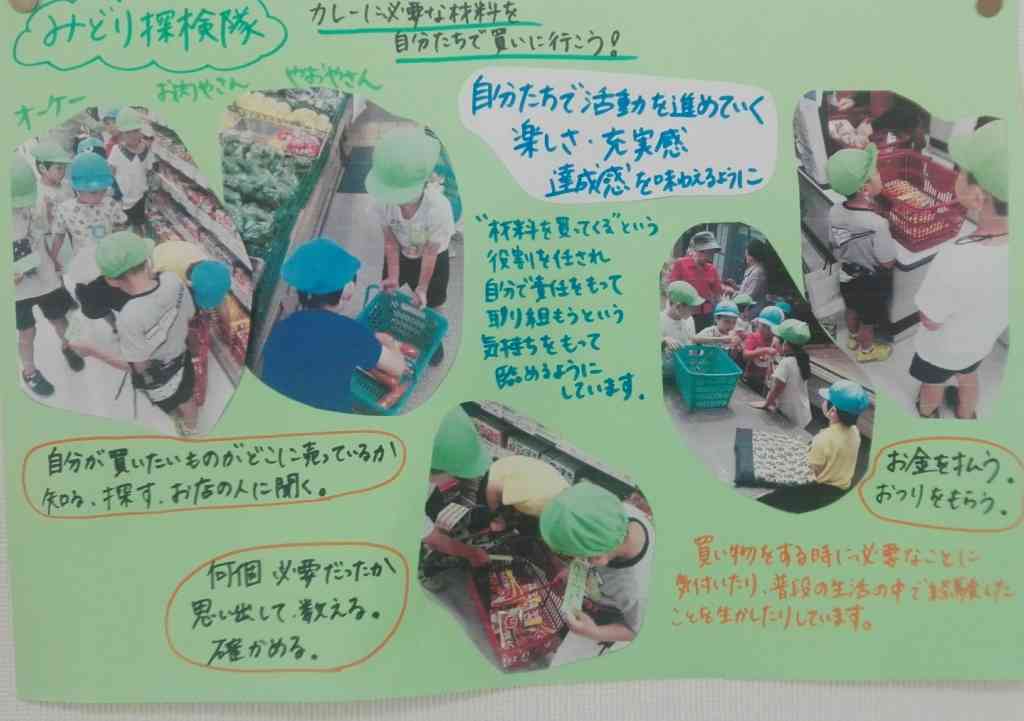 みどり探検隊
カレーに必要な材料を
自分たちで買いに行こう!
オーケー
お肉やさん
やおやさん
自分たちで活動を進めていく
楽しさ・充実感
達成感を味わえるように
"材料を買ってくる"という
役割を任され
自分で責任をもって
取り組もうという
気持ちをもって
臨めるように
しています。
自分が買いたいものがどこに売っているか
知る、探す、お店の人に聞く。
お金を払う。
おつりをもらう。
何個必要だったか
思い出して、数える。
確かめる。
買い物をする時に必要なことに
気付いたり、普段の生活の中で経験した
ことを生かしたりしています。